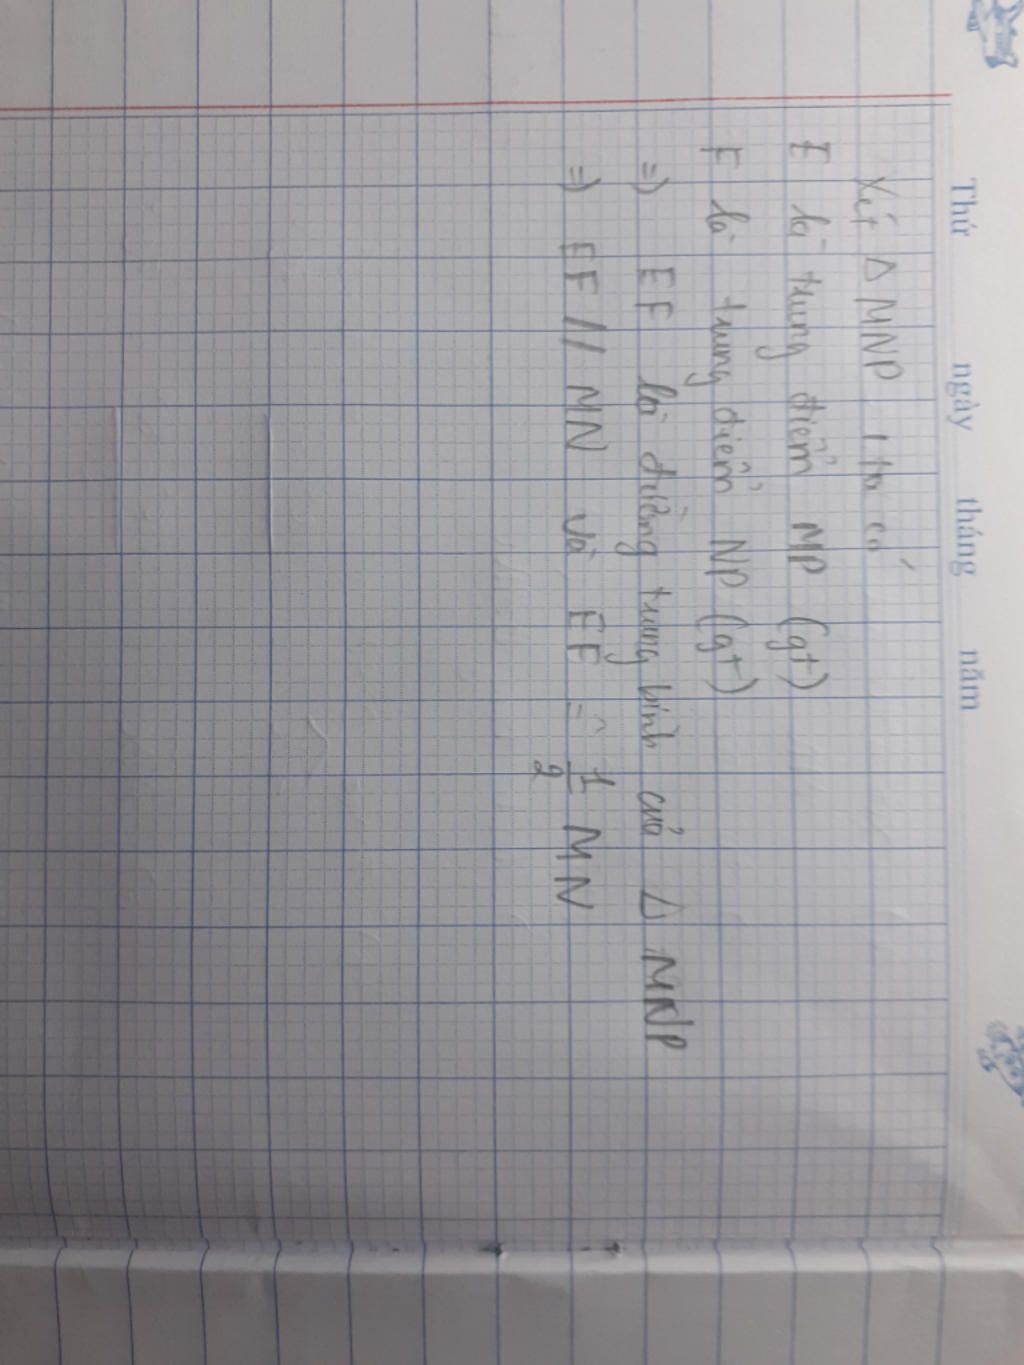 Thứ ngày tháng năm
Xét Δ MNP, ta có
E là trung điểm MP (gt)
F là trung điểm NP (gt)
=) EF là đường trung bình của Δ MNP
=) EF // MN và EF = 1/2 MN